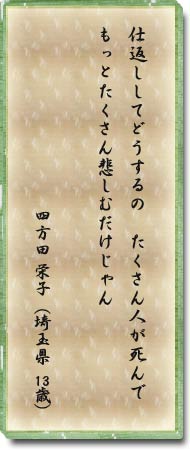 仕返ししてどうするの　たくさん人が死んで
もっとたくさん悲しむだけじゃん
四方田 栄子 (埼玉県 13歳)